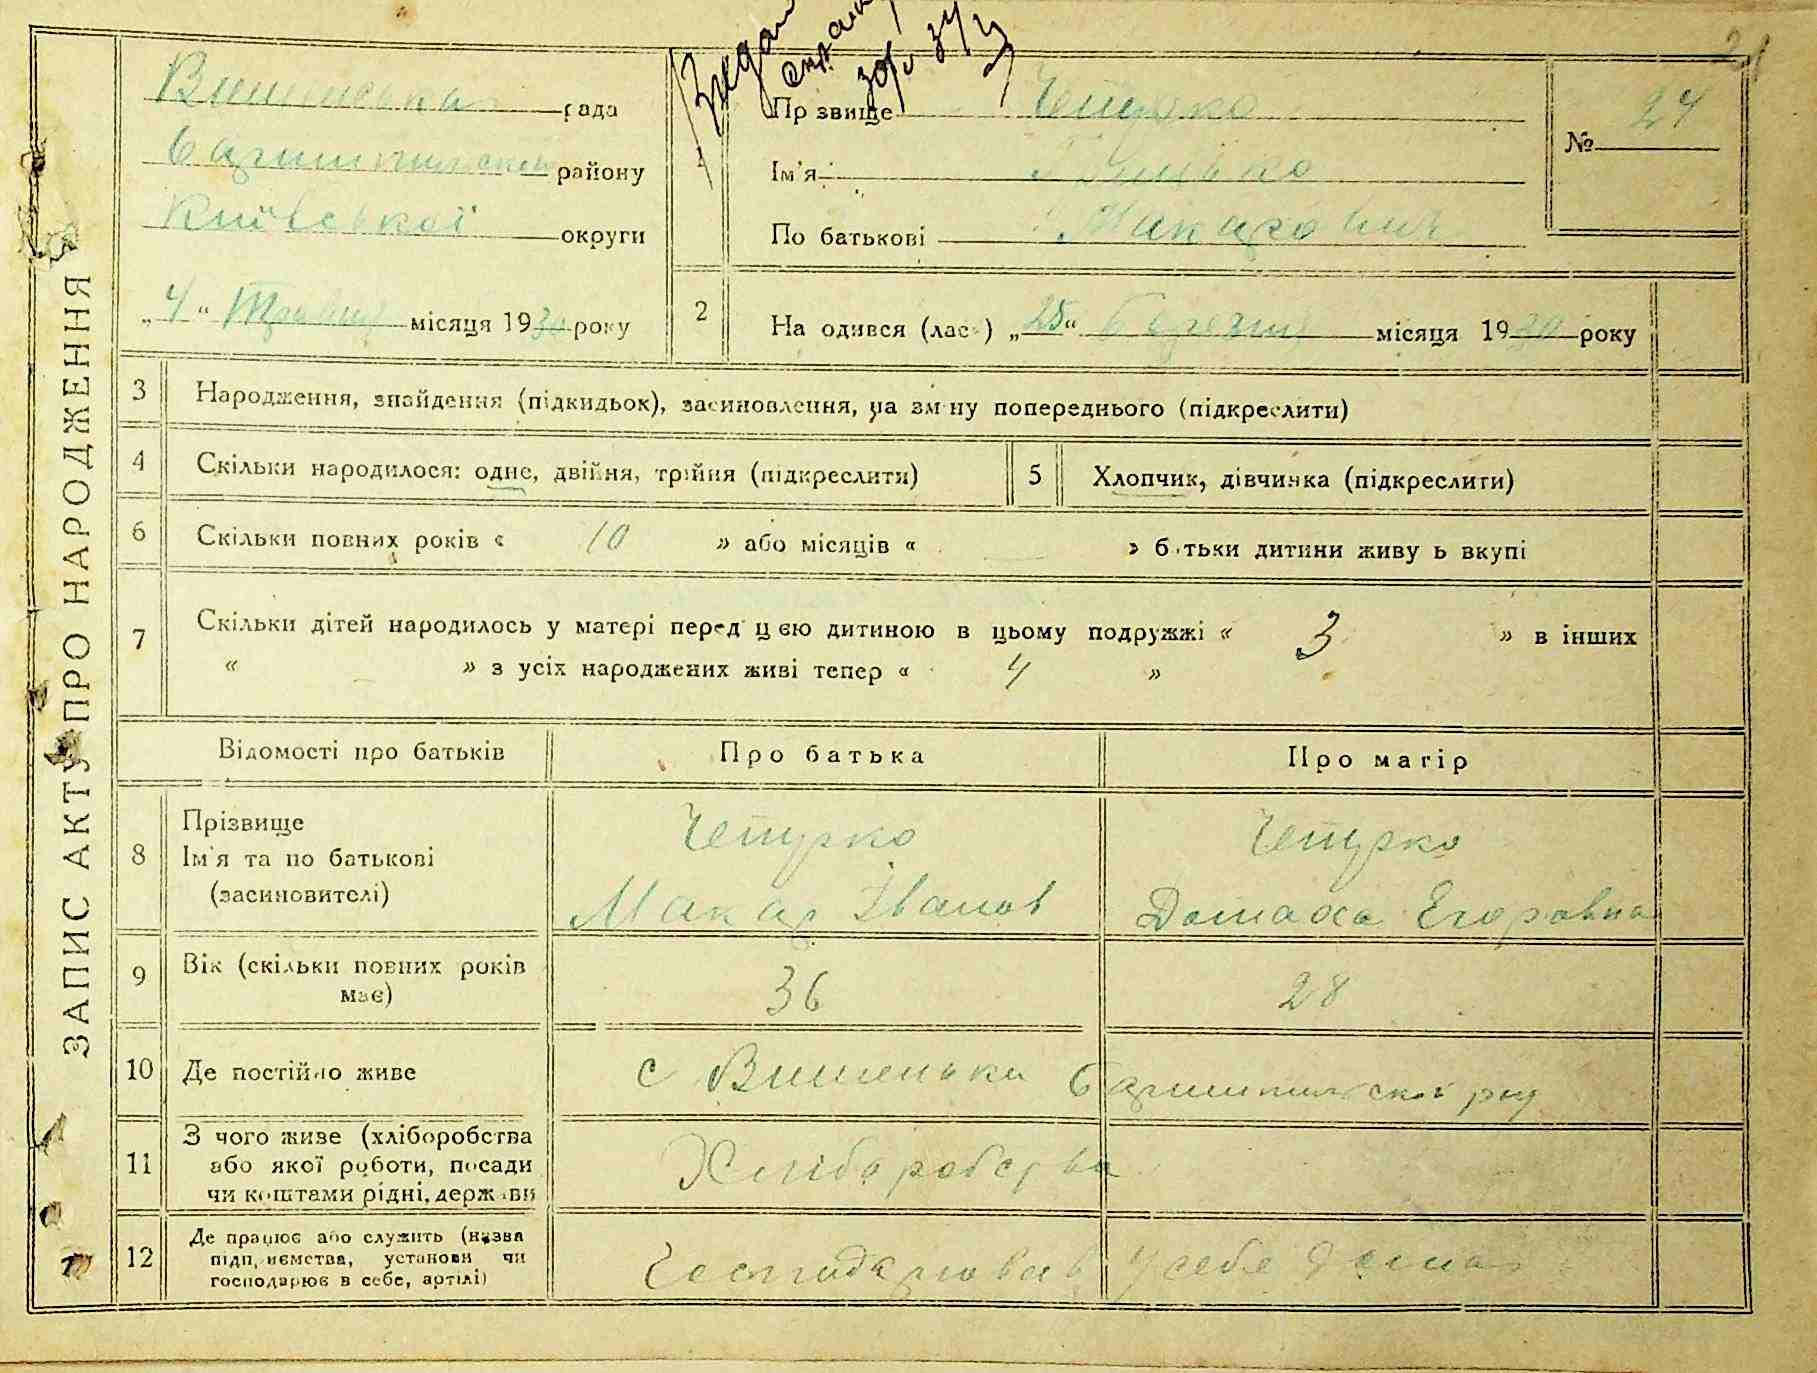 ЗАПИС АКТУ ПРО НАРОДЖЕННЯ
24
Вишеньская рада
Баришпильской району
Київської округи
„4“ Травня місяця 1930 року
Прізвище Чепурко
Ім'я
По батькові Макарович
№ 24
2 На одився (лась) „25“ Березня місяця 1930 року
3 Народження, знайдення (підкидьок), засиновлення, на зміну попереднього (підкреслити)
4 Скільки народилося: одне, двійня, трійня (підкреслити)
5 Хлопчик, дівчинка (підкреслити)
6 Скільки повних років « 10 » або місяців « — » батьки дитини живуть вкупі
7 Скільки дітей народилось у матері перед цією дитиною в цьому подружжі « 3 » в інших
« — » з усіх народжених живі тепер « 4 »
Відомості про батьків Про батька Про матір
8 Прізвище
Ім'я та по батькові
(засиновителі)
Чепурко
Макар Іванов
Чепурко
Домаха Егоровна
9 Вік (скільки повних років
має)
36
28
10 Де постійно живе
с Вишеньки Баришпильској рну
11 З чого живе (хліборобства
або якої роботи, посади
чи коштами рідні, держави
Хліборобства
12 Де працює або служить (назва
підприємства, установи чи
господарює в себе, артілі)
у себе дома